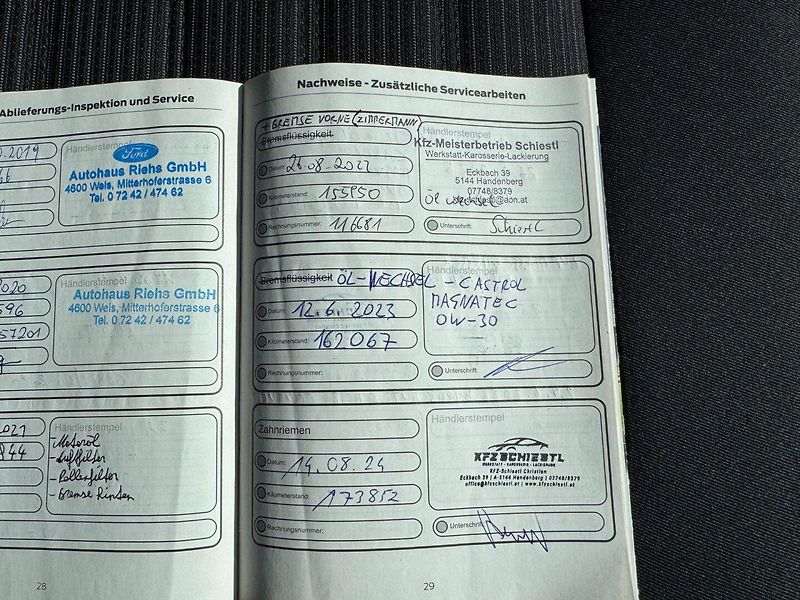 Ablieferungs-Inspektion und Service
.2019
66
Händlerstempel
Ford
Autohaus Riehs GmbH
4600 Wels, Mitterhoferstrasse 6
Tel. 0 72 42 / 474 62
2020
696
57201
Händlerstempel
Autohaus Riehs GmbH
4600 Wels, Mitterhoferstrasse 6
Tel. 0 72 42 / 474 62
2021
844
Händlerstempel
- Motoröl
- Luftfilter
- Pollenfilter
- Bremse hinten
28
Nachweise - Zusätzliche Servicearbeiten
+ BREMSE VORNE (ZIMMERMANN)
Bremsflüssigkeit
Datum:
Kilometerstand: 155950
Rechnungsnummer: 116681
Händlerstempel
Kfz-Meisterbetrieb Schiestl
Werkstatt-Karosserie-Lackierung
Eckbach 39
5144 Handenberg
07748/8379
Öl wechsel
Unterschrift: Schiestl
Bremsflüssigkeit ÖL-WECHSEL - CASTROL
MAGNATEC
0W-30
Datum: 12.6.2023
Kilometerstand: 162067
Rechnungsnummer:
Händlerstempel
Unterschrift:
Zahnriemen
Datum: 14.08.24
Kilometerstand: 173852
Rechnungsnummer:
Händlerstempel
KFZ SCHIESTL
WERKSTATT - KAROSSERIE - LACKIERUNG
KFZ-Schiestl Christian
Eckbach 39 | A-5144 Handenberg | 07748/8379
office@kfzschiestl.at | www.kfzschiestl.at
Unterschrift:
29